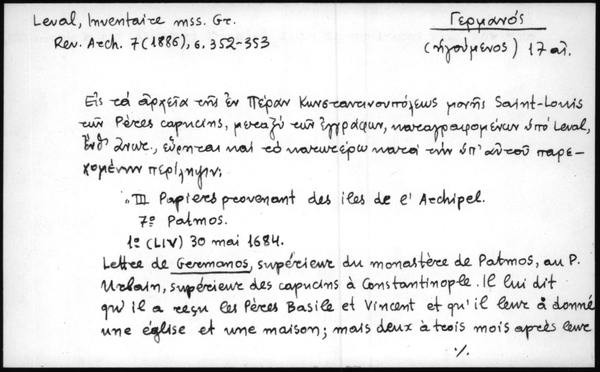 Leval, Inventaire mss. Gr.
Rev. Arch. 7 (1886), σ. 352-353
Γερμανός
(ηγούμενος) 17 αι.
Εις τα αρχεία της εν Πέραν Κωνσταντινουπόλεως μονής Saint-Louis
των Pères capucins, μεταξύ των εγγράφων, καταγραφομένων υπό Leval,
ένθ' ανωτ., εύρηται και το κατωτέρω κατά την υπ' αυτού παρε-
χομένην περίληψιν:
„III Papiers provenant des iles de l'Archipel.
7º Patmos.
1º (LIV) 30 mai 1684.
Lettre de Germanos, supérieur du monastère de Patmos, au P.
Urbain, supérieur des capucins à Constantinople. Il lui dit
qu'il a reçu les Pères Basile et Vincent et qu'il leur a donné
une église et une maison; mais deux à trois mois après leur
./.